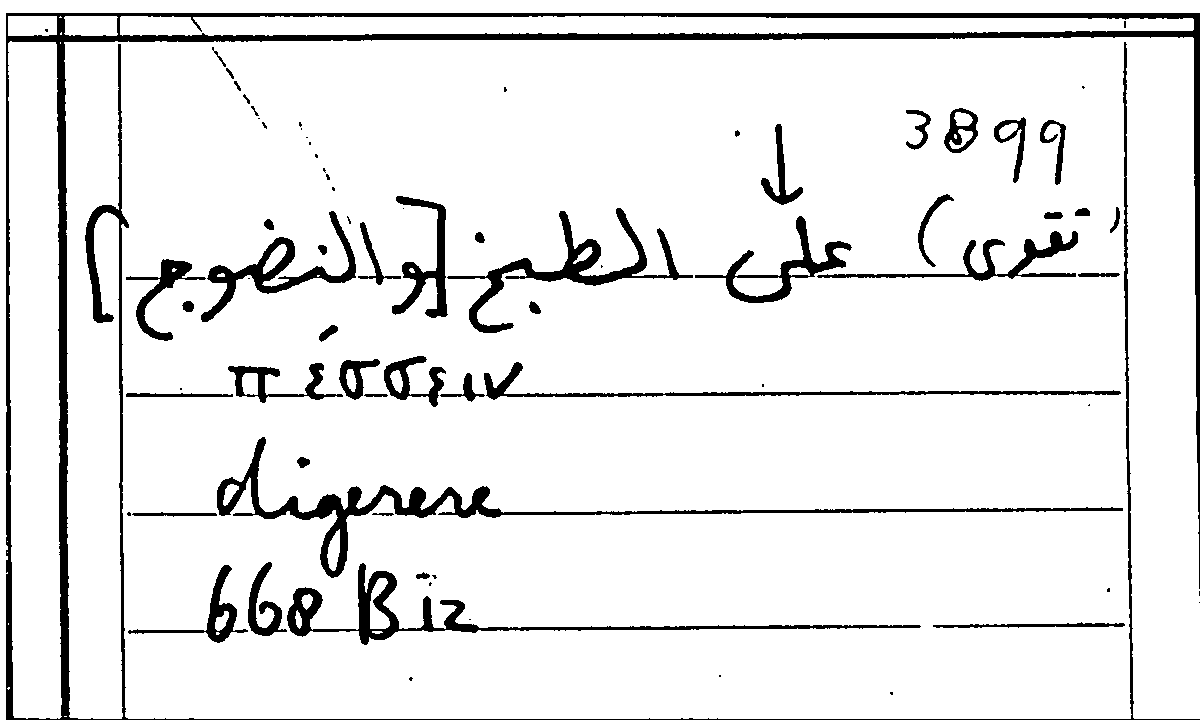 3899
(تقوى) على الطبخ [والنضوج]
πέσσειν
digerere
668 B 12